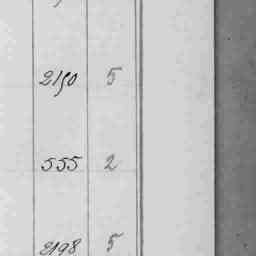 2150 5
555 2
2198 5